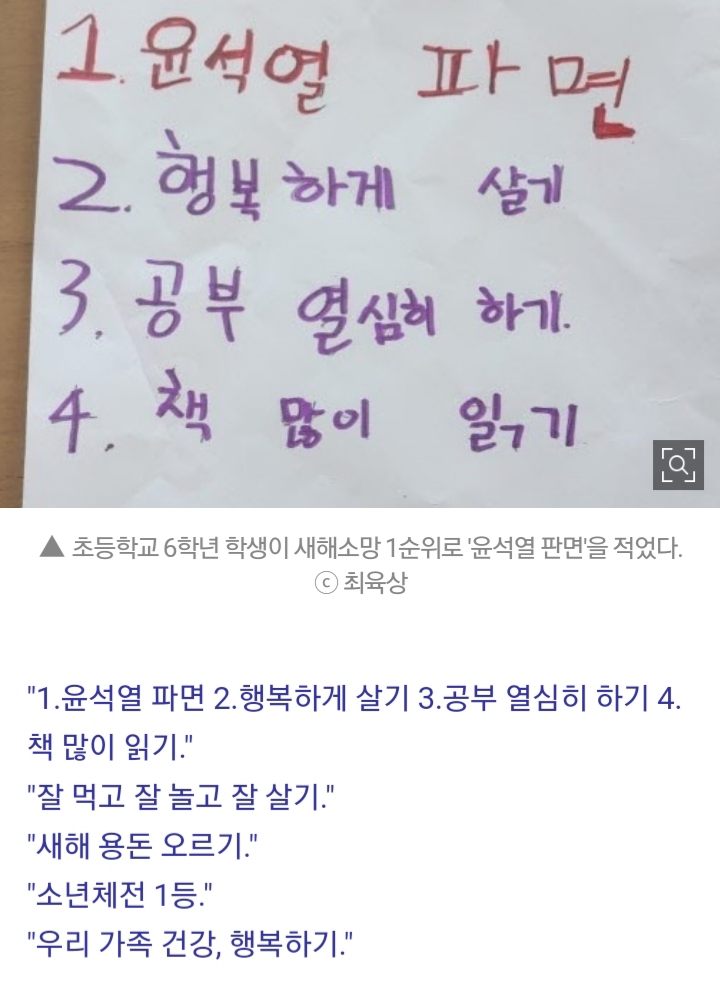 1. 윤석열 파면
2. 행복하게 살기
3. 공부 열심히 하기.
4. 책 많이 읽기
▲ 초등학교 6학년 학생이 새해소망 1순위로 '윤석열 판면'을 적었다.
ⓒ 최육상
"1.윤석열 파면 2.행복하게 살기 3.공부 열심히 하기 4.
책 많이 읽기."
"잘 먹고 잘 놀고 잘 살기."
"새해 용돈 오르기."
"소년체전 1등."
"우리 가족 건강, 행복하기."